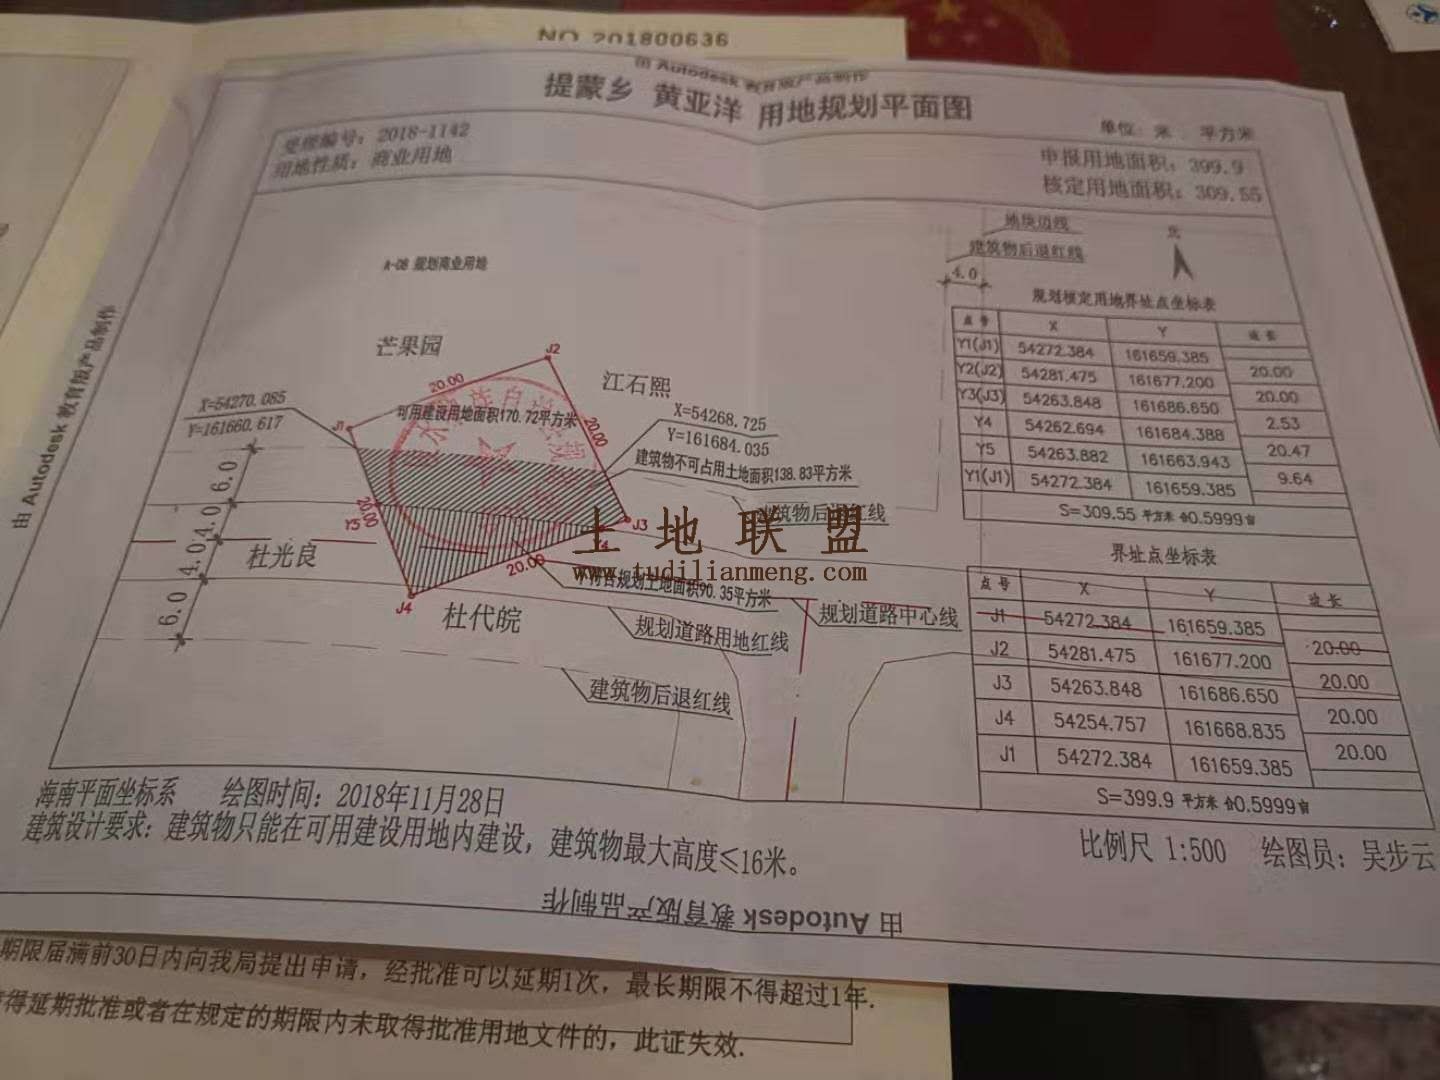 NO 201800636
由 Autodesk 教育版产品制作
提蒙乡 黄亚洋 用地规划平面图
单位：米 、平方米
受理编号：2018-1142
用地性质：商业用地
申报用地面积：399.9
核定用地面积：309.55
地块边线
建筑物后退红线
北
4.0
A-08 规划商业用地
芒果园
J2
江石熙
20.00
可用建设用地面积170.72平方米
20.00
X=54270.085
Y=161660.617
J1
X=54268.725
Y=161684.035
建筑物不可占用土地面积138.83平方米
6.0
4.0
4.0
6.0
Y5
20.00
J3
Y4
建筑物后退红线
杜光良
20.00
J4
符合规划土地面积90.35平方米
杜代皖
规划道路用地红线
规划道路中心线
建筑物后退红线
土地联盟
www.tudilianmeng.com
规划核定用地界址点坐标表
点号 X Y 边长
Y1(J1) 54272.384 161659.385
20.00
Y2(J2) 54281.475 161677.200
20.00
Y3(J3) 54263.848 161686.650
2.53
Y4 54262.694 161684.388
20.47
Y5 54263.882 161663.943
9.64
Y1(J1) 54272.384 161659.385
S=309.55 平方米 合0.5999亩
界址点坐标表
点号 X Y 边长
J1 54272.384 161659.385
20.00
J2 54281.475 161677.200
20.00
J3 54263.848 161686.650
20.00
J4 54254.757 161668.835
20.00
J1 54272.384 161659.385
S=399.9 平方米 合0.5999亩
海南平面坐标系 绘图时间：2018年11月28日
建筑设计要求：建筑物只能在可用建设用地内建设，建筑物最大高度≤16米。
比例尺 1:500 绘图员：吴步云
由 Autodesk 教育版产品制作
由 Autodesk 教育版产品制作
期限届满前30日内向我局提出申请，经批准可以延期1次，最长期限不得超过1年.
得延期批准或者在规定的期限内未取得批准用地文件的，此证失效.